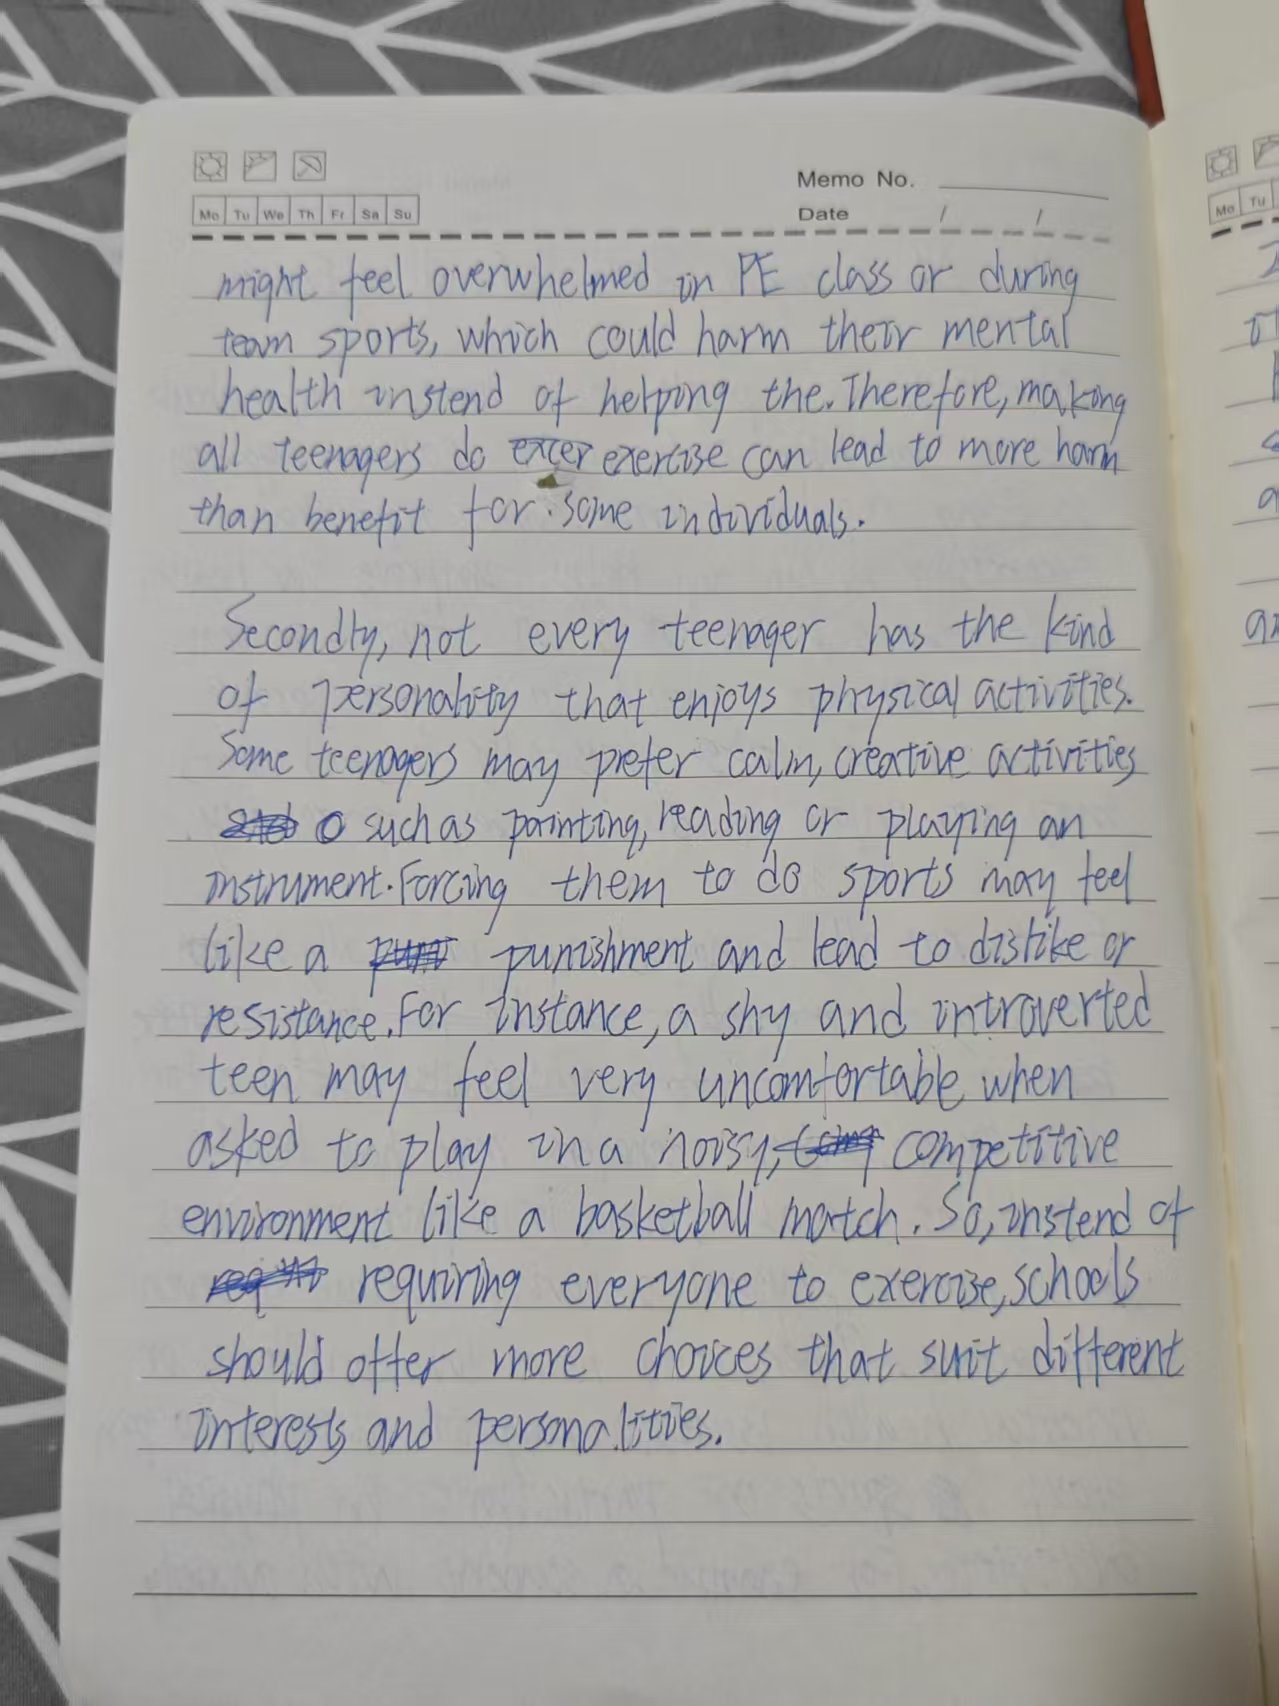 Memo No.
Mo Tu We Th Fr Sa Su
Date / /
might feel overwhelmed in PE class or during
team sports, which could harm their mental
health instend of helping the. Therefore, making
all teenagers do excer exercise can lead to more harm
than benefit for. some individuals.
Secondly, not every teenager has the kind
of personality that enjoys physical activities.
Some teenagers may prefer calm, creative activities
such as painting, reading or playing an
instrument. Forcing them to do sports may feel
like a punishment and lead to dislike or
resistance. For instance, a shy and introverted
teen may feel very uncomfortable when
asked to play in a noisy, competitive
environment like a basketball match. So, instend of
requiring everyone to exercise, schools
should offer more choices that suit different
interests and personalities.
Mo Tu